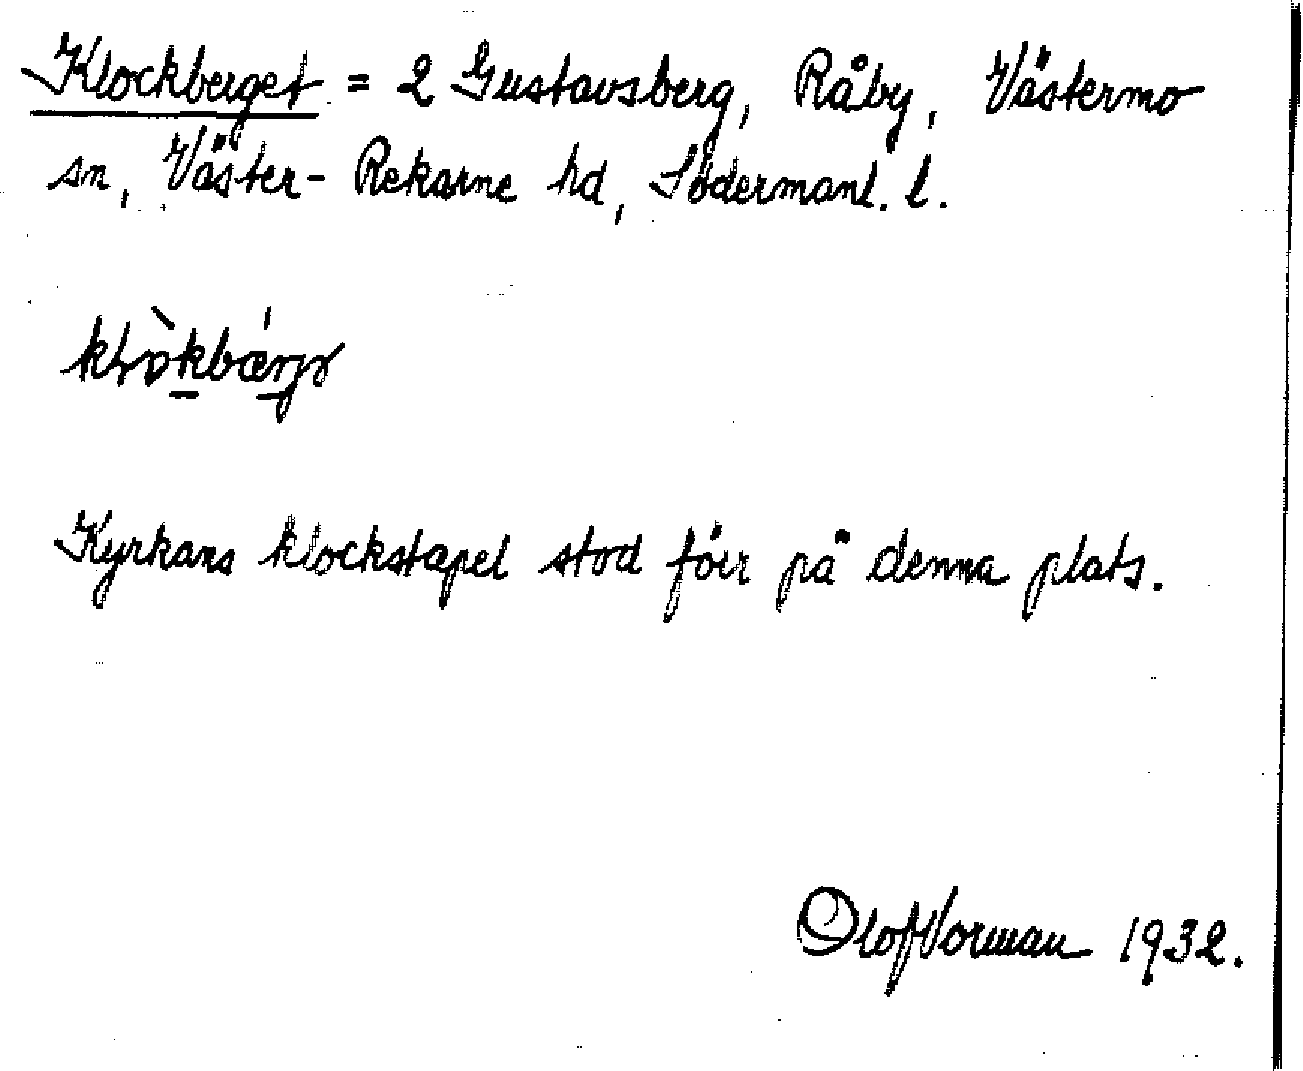 Klockberget = 2 Gustavsberg, Råby, Västermo
sn, Väster-Rekarne hd, Södermanl. l.
Kyrkans klockstapel stod förr på denna plats.
Olof Norman 1932.